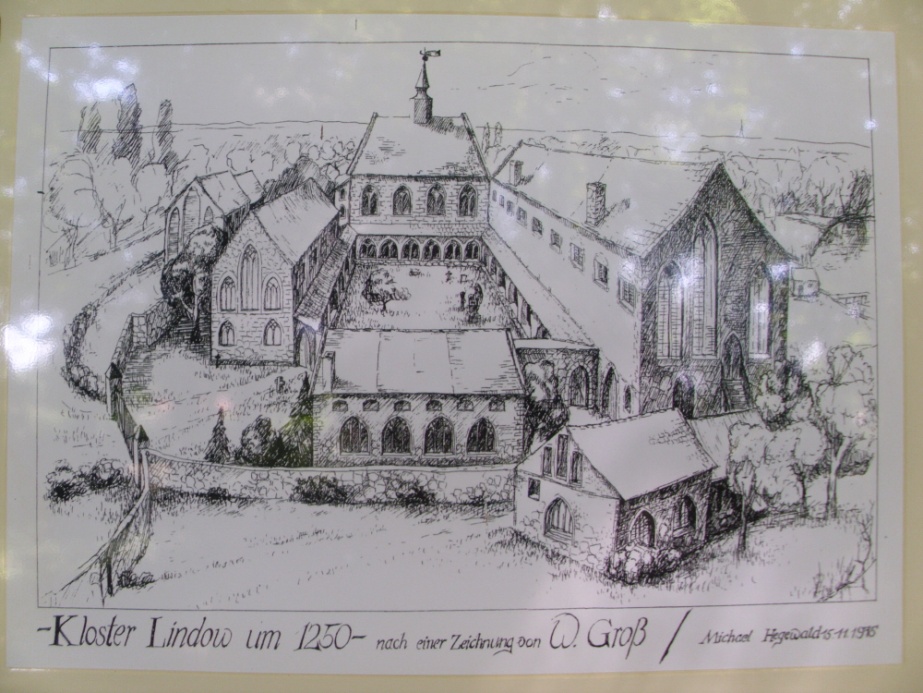 -Kloster Lindow um 1250- nach einer Zeichnung von W. Groß / Michael Hegewald 15.11.1995